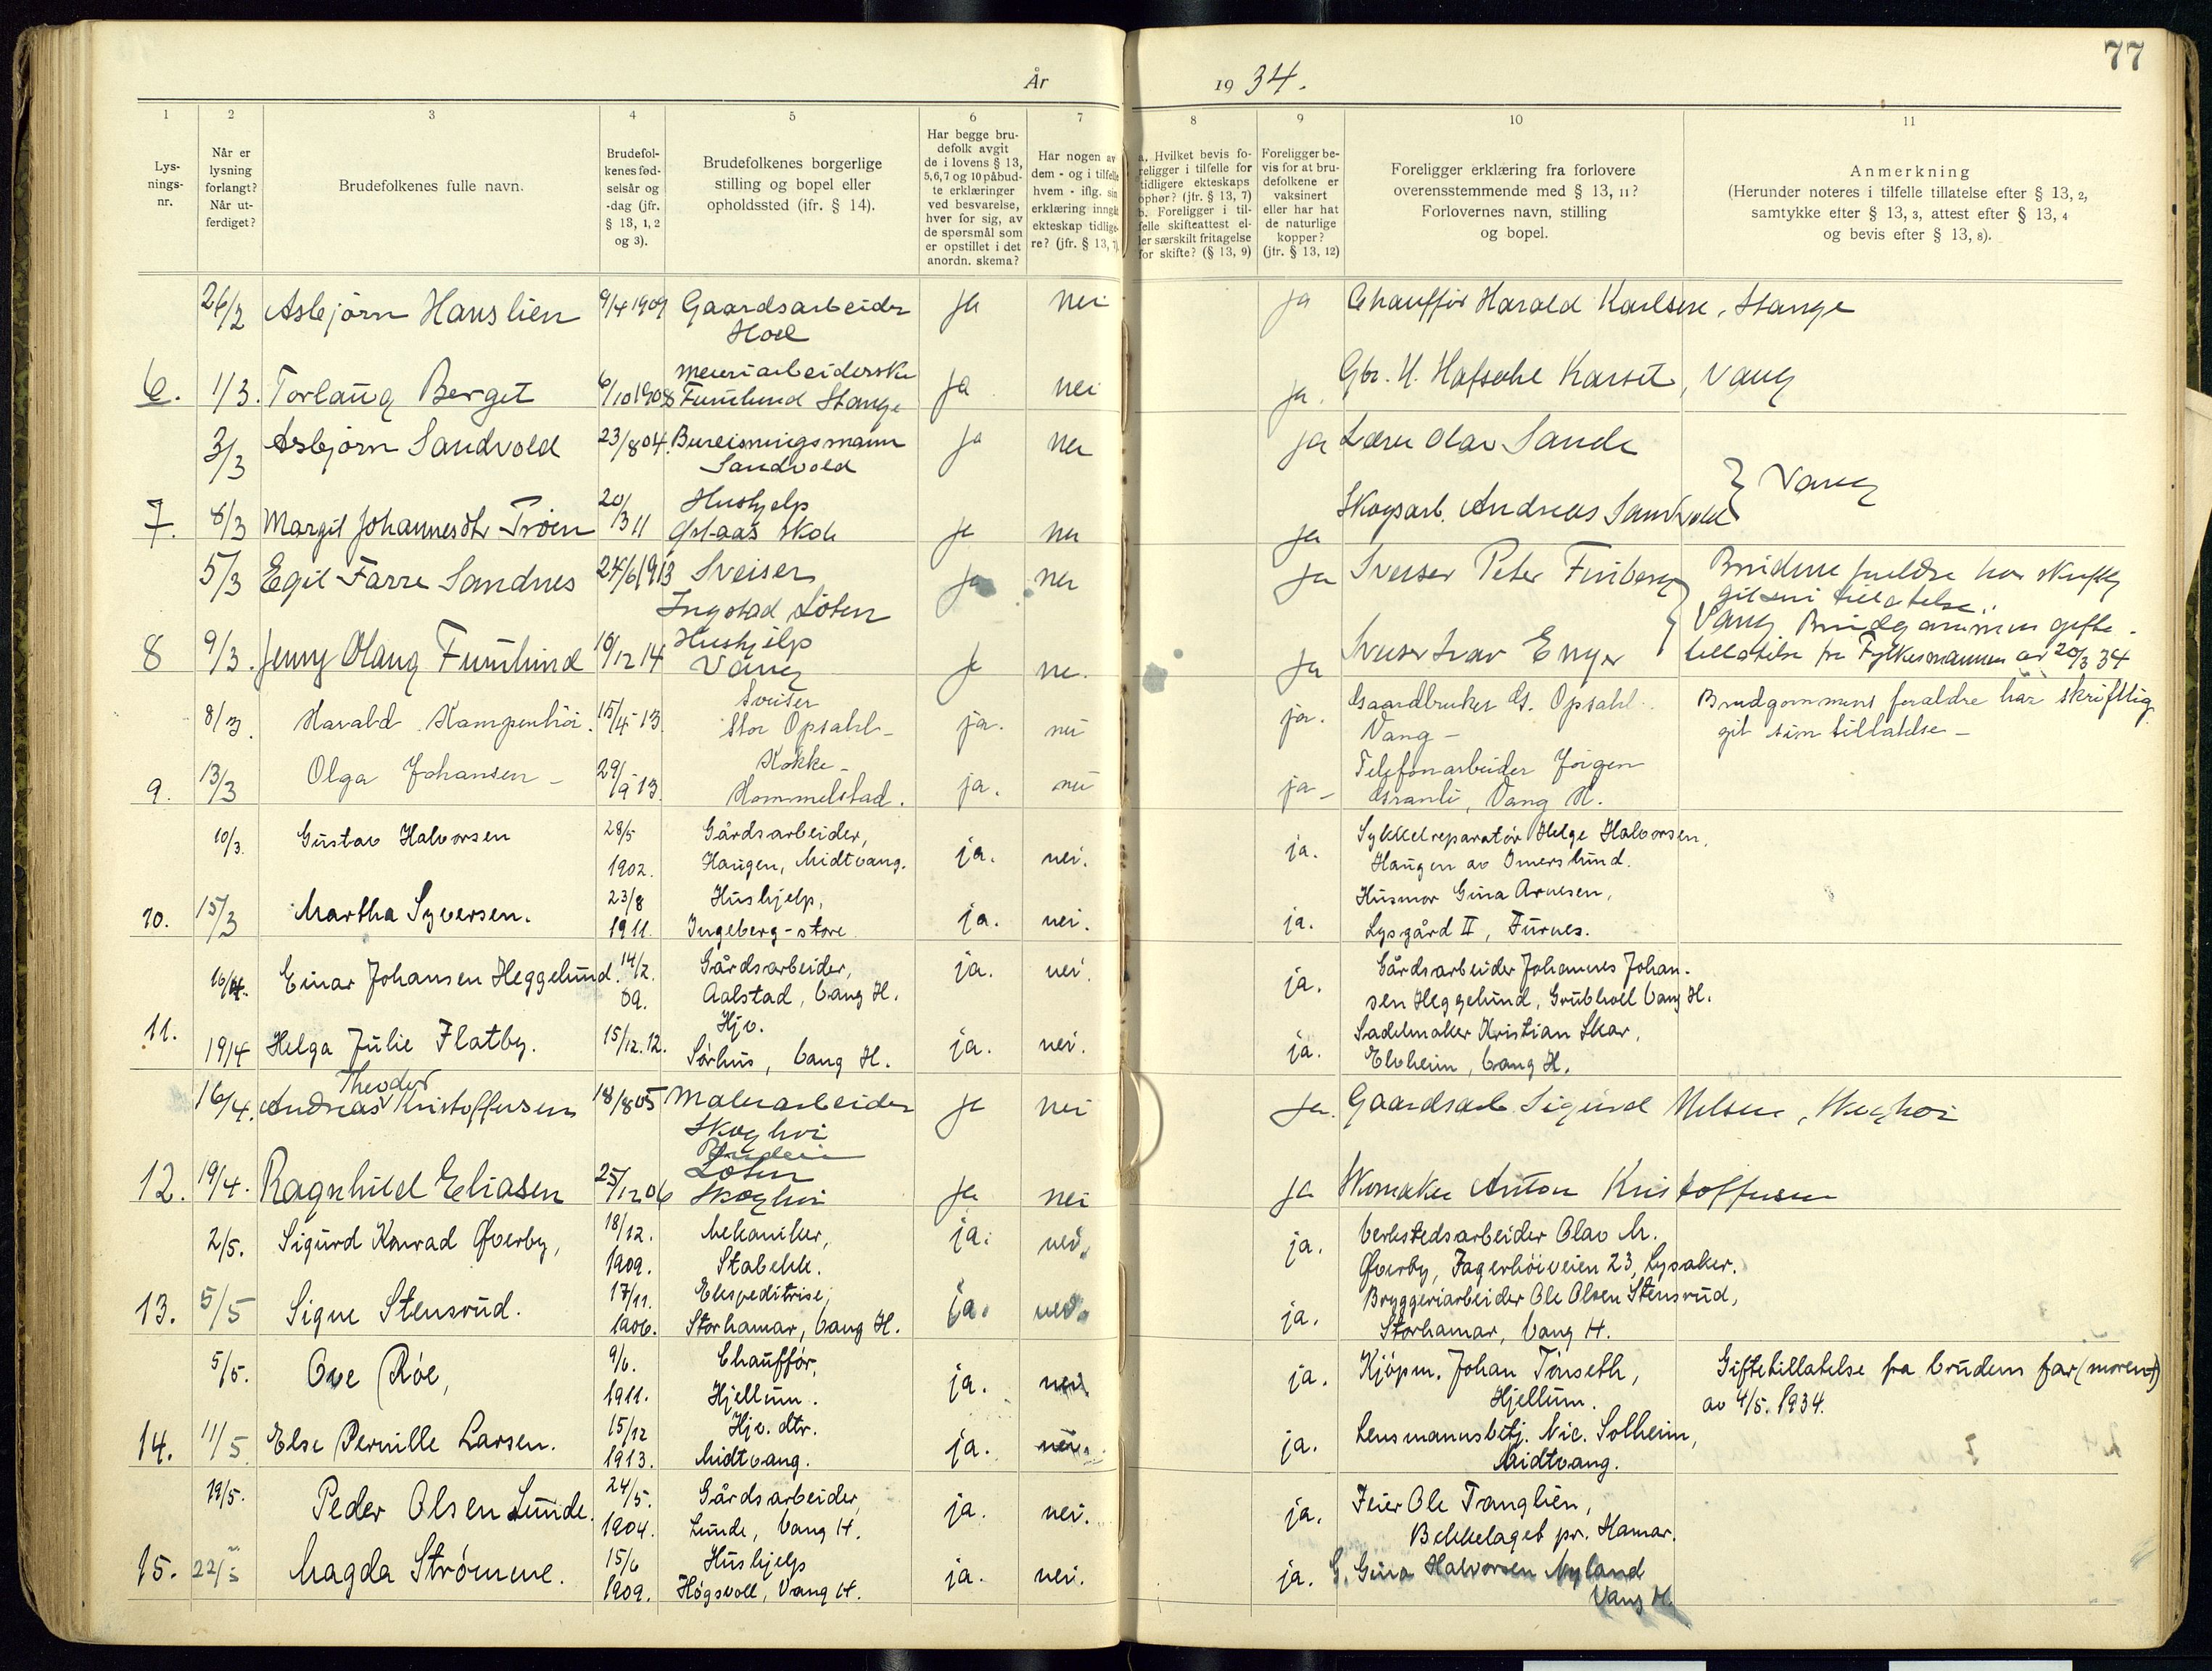 77
År 1934.
1 2 3 4 5 6 7 8 9 10 11
Lys-
nings-
nr.
Når er
lysning
forlangt?
Når ut-
ferdiget?
Brudefolkenes fulle navn.
Brudefol-
kenes fød-
selsår og
-dag (jfr.
§ 13, 1, 2
og 3).
Brudefolkenes borgerlige
stilling og bopel eller
opholdssted (ifr. § 14).
Har begge bru-
defolk avgit
de i lovens § 13,
5,6,7 og 10 påbud-
te erklæringer
ved besvarelse,
hver for sig, av
de spørsmål som
er opstillet i det
anordn. skema?
Har nogen av
dem - og i tilfelle
hvem - iflg. sin
erklæring inngåt
ekteskap tidlige-
re? (jfr. § 13, 7)
a. Hvilket bevis fo-
religger i tilfelle for
tidligere ekteskaps
ophør? (jfr. § 13, 7)
b. Foreligger i til-
felle skifteattest el-
ler særskilt fritagelse
for skifte? (§ 13, 9)
Foreligger be-
vis for at bru-
defolkene er
vaksinert
eller har hat
de naturlige
kopper?
(jfr. § 13, 12)
Foreligger erklæring fra forlovere
overensstemmende med § 13, 11?
Forlovernes navn, stilling
og bopel.
Anmerkning
(Herunder noteres i tilfelle tillatelse efter § 13, 2,
samtykke efter § 13, 3, attest efter § 13, 4
og bevis efter § 13, 8).
26/2 Asbjørn Hanslien 9/4 1909 Gaardsarbeider ja nei ja Chauffør Harald Karlsen, Stange
Hoel
6. 1/3. Torlaug Berget 6/10 1908 Meieriarbeiderske ja nei ja. Gbr. H. Hafsahl Karset, Vang
Furulund Stange
3/3 Asbjørn Sandvold 23/8 04. Bureisningsmann ja nei ja Lærer Olav Sande
Sandvold
} Vang
7. 8/3 Margit Johannesdtr Trøen 20/3 11 Hushjelp ja nei ja Skogsarb. Andreas Sandvold
skole
5/3 Egil Farre Sandnes 24/6 1913 Sveiser ja nei ja Sveiser Peter Furuberg
Ingstad Løten
Brudens foreldre har skriftlig
git sin tillatelse.
8 9/3. Jenny Olaug Furulund 10/12 14 Hushjelp ja nei. ja Sveiser Ivar Enger
Vang
Vang Brudgommen gifte-
tillatelse fra Fylkesmannen av 20/3 34
8/3. Harald Kampenhøi. 15/4-13. Sveiser ja. nei ja. Gaardbruker G. Opsahl.
Stor Opsahl- Vang-
Brudgommens foreldre har skriftlig
git sin tillatelse-
9. 13/3 Olga Johansen- 29/9-13. Kokke- ja. nei ja- Telefonarbeider Jørgen
Hommelstad. Granli, Vang H.
10/3. Gustav Halvorsen 28/5 Gårdsarbeider, ja. nei. ja. Sykkelreparatør Helge Halvorsen,
1902. Haugen, Midtvang. Haugen av Imerslund.
10. 15/3 Martha Syversen. 23/8 Hushjelp, ja. nei. ja. Husmor Gina Arnesen,
1911. Ingeberg-store Lysgård II, Furnes.
16/4. Einar Johansen Heggelund. 14/2. Gårdsarbeider, ja. nei. ja. Gårdsarbeider Johannes Johan-
09. Aalstad, Vang H. sen Heggelund, Grubhoel Vang H.
11. 19/4 Helga Julie Flatby. 15/12. 12. Hjv. ja. nei. ja. Sadelmaker Kristian Skar,
Sørhus, Vang H. Elvheim, Vang H.
Theodor
16/4. Andreas Kristoffersen 18/8 05 Malerarbeider ja nei ja. Gaardsarb. Sigurd Nilsen, Skoghøi
Skoghøi
12. 19/4. Ragnhild Eliasen 25/12 06 Løten ja nei ja Skomaker Anton Kristoffersen
Skoghøi
2/5. Sigurd Konrad Øverby, 18/12. Mekaniker, ja. nei. ja. Verkstedsarbeider Olav M.
1909. Stabekk. Øverby, Fagerhøiveien 23, Lysaker.
13. 5/5 Signe Stensrud. 17/11. Ekspeditrise, ja. nei. ja. Bryggeriarbeider Ole Olsen Stensrud,
1906. Storhamar, Vang H. Storhamar, Vang H.
5/5. Ove Røe, 9/6. Chauffør, ja. nei. ja. Kjøpm. Johan Tønseth,
1911. Hjellum. Hjellum.
Giftetillatelse fra brudens far (moren †)
av 4/5. 1934.
14. 11/5 Else Pernille Larsen. 15/12 Hjv. dtr. ja. nei. ja. Lensmannsbetj. Nic. Solheim,
1913. Midtvang. Midtvang.
19/5. Peder Olsen Lunde. 24/5. Gårdsarbeider, ja. nei. ja. Feier Ole Tanglien,
1904. Lunde, Vang H. Bekkelaget pr. Hamar.
15. 22/5 Magda Strømme. 15/6 Hushjelp ja. nei. ja. G. Gina Halvorsen Nyland
1909. Høgsvoll, Vang H. Vang H.